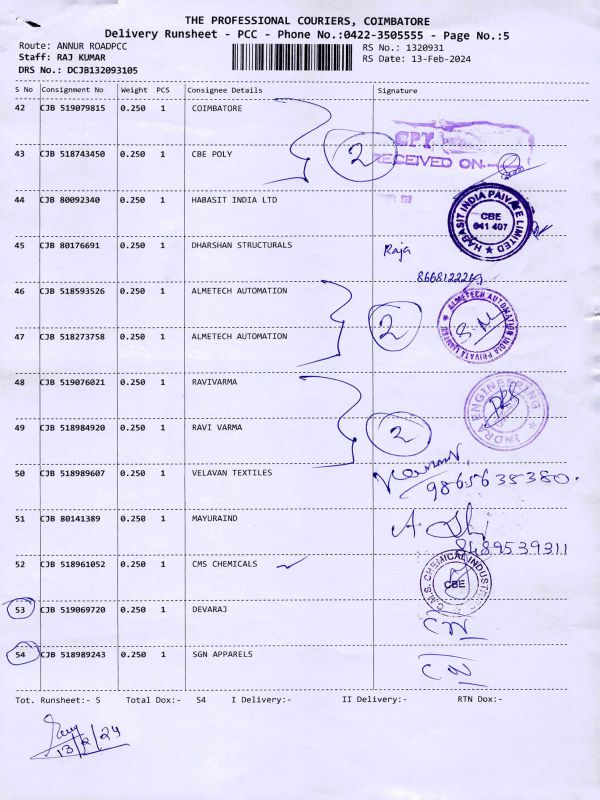 THE PROFESSIONAL COURIERS, COIMBATORE
Delivery Runsheet - PCC - Phone No.:0422-3505555 - Page No.:5
Route: ANNUR ROADPCC
RS No.: 1320931
Staff: RAJ KUMAR
RS Date: 13-Feb-2024
DRS No.: DCJB132093105
S No Consignment No Weight PCS Consignee Details Signature
42 CJB 519079815 0.250 1 COIMBATORE
43 CJB 518743450 0.250 1 CBE POLY
2
RECEIVED ON
44 CJB 80092340 0.250 1 HABASIT INDIA LTD
HABASIT INDIA PAIVATE LIMITED ★
CBE
641 407
45 CJB 80176691 0.250 1 DHARSHAN STRUCTURALS
Raja
46 CJB 518593526 0.250 1 ALMETECH AUTOMATION
47 CJB 518273758 0.250 1 ALMETECH AUTOMATION
2
ALMETECH AUTOMATION INDIA PRIVATE LIMITED
48 CJB 519076021 0.250 1 RAVIVARMA
49 CJB 518984920 0.250 1 RAVI VARMA
2
INDRA ENGINEERING
50 CJB 518989607 0.250 1 VELAVAN TEXTILES
9865635380.
51 CJB 80141389 0.250 1 MAYURAIND
8489539311
52 CJB 518961052 0.250 1 CMS CHEMICALS
C.M.S. CHEMICAL INDUSTRIES
CBE
53 CJB 519069720 0.250 1 DEVARAJ
CN
54 CJB 518989243 0.250 1 SGN APPARELS
CN
Tot. Runsheet:- 5 Total Dox:- 54 I Delivery:- II Delivery:- RTN Dox:-
13/2/24